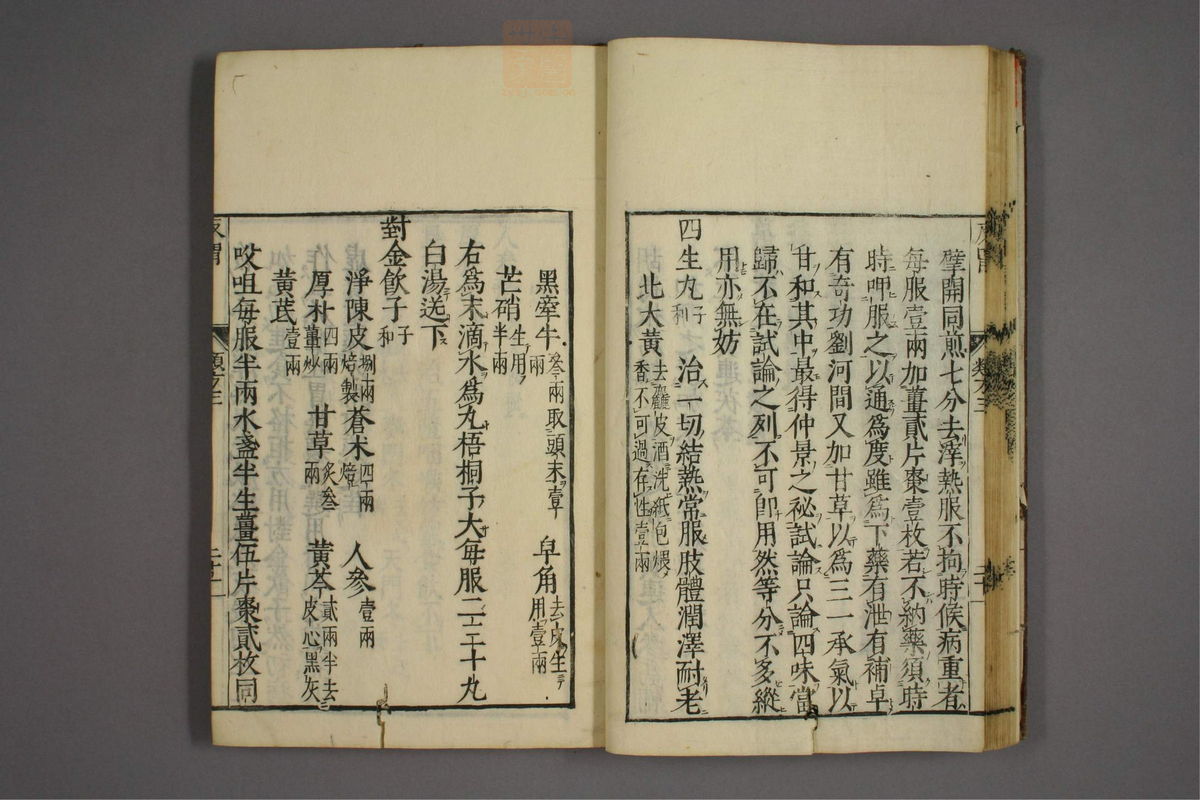 擘開同煎七分去滓熱服不拘時候病重者
每服壹兩加薑貳片棗壹枚若不納藥須時
時呷服之以通爲度雖爲下藥有泄有補卓
有奇功劉河間又加甘草以爲三一承氣以
甘和其中最得仲景之祕試論只論四味當
歸不在試論之列不可卽用然等分不多縱
用亦無妨
四生丸 子和 治一切結熱常服肢體潤澤耐老
北大黃 去麤皮酒洗紙包煨香不可過存性壹兩
黑牽牛 叄兩取頭末壹兩 皁角 去皮生用壹兩
芒硝 生用半兩
右爲末滴水爲丸梧桐子大每服二三十丸
白湯送下
對金飲子 子和
淨陳皮 捌兩焙製 蒼朮 四兩焙 人參 壹兩
厚朴 四兩薑炒 甘草 炙叄兩 黃芩 貳兩半去皮心黑灰
黃芪 壹兩
㕮咀每服半兩水盞半生薑伍片棗貳枚同